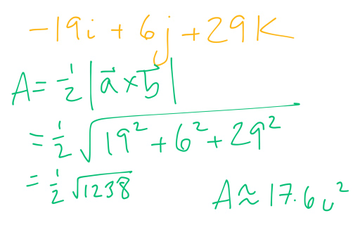 -19i + 6j + 29K
A = 1/2 |a⃗ × b⃗|
= 1/2 √(19² + 6² + 29²)
= 1/2 √1238
A ≈ 17.6 u²